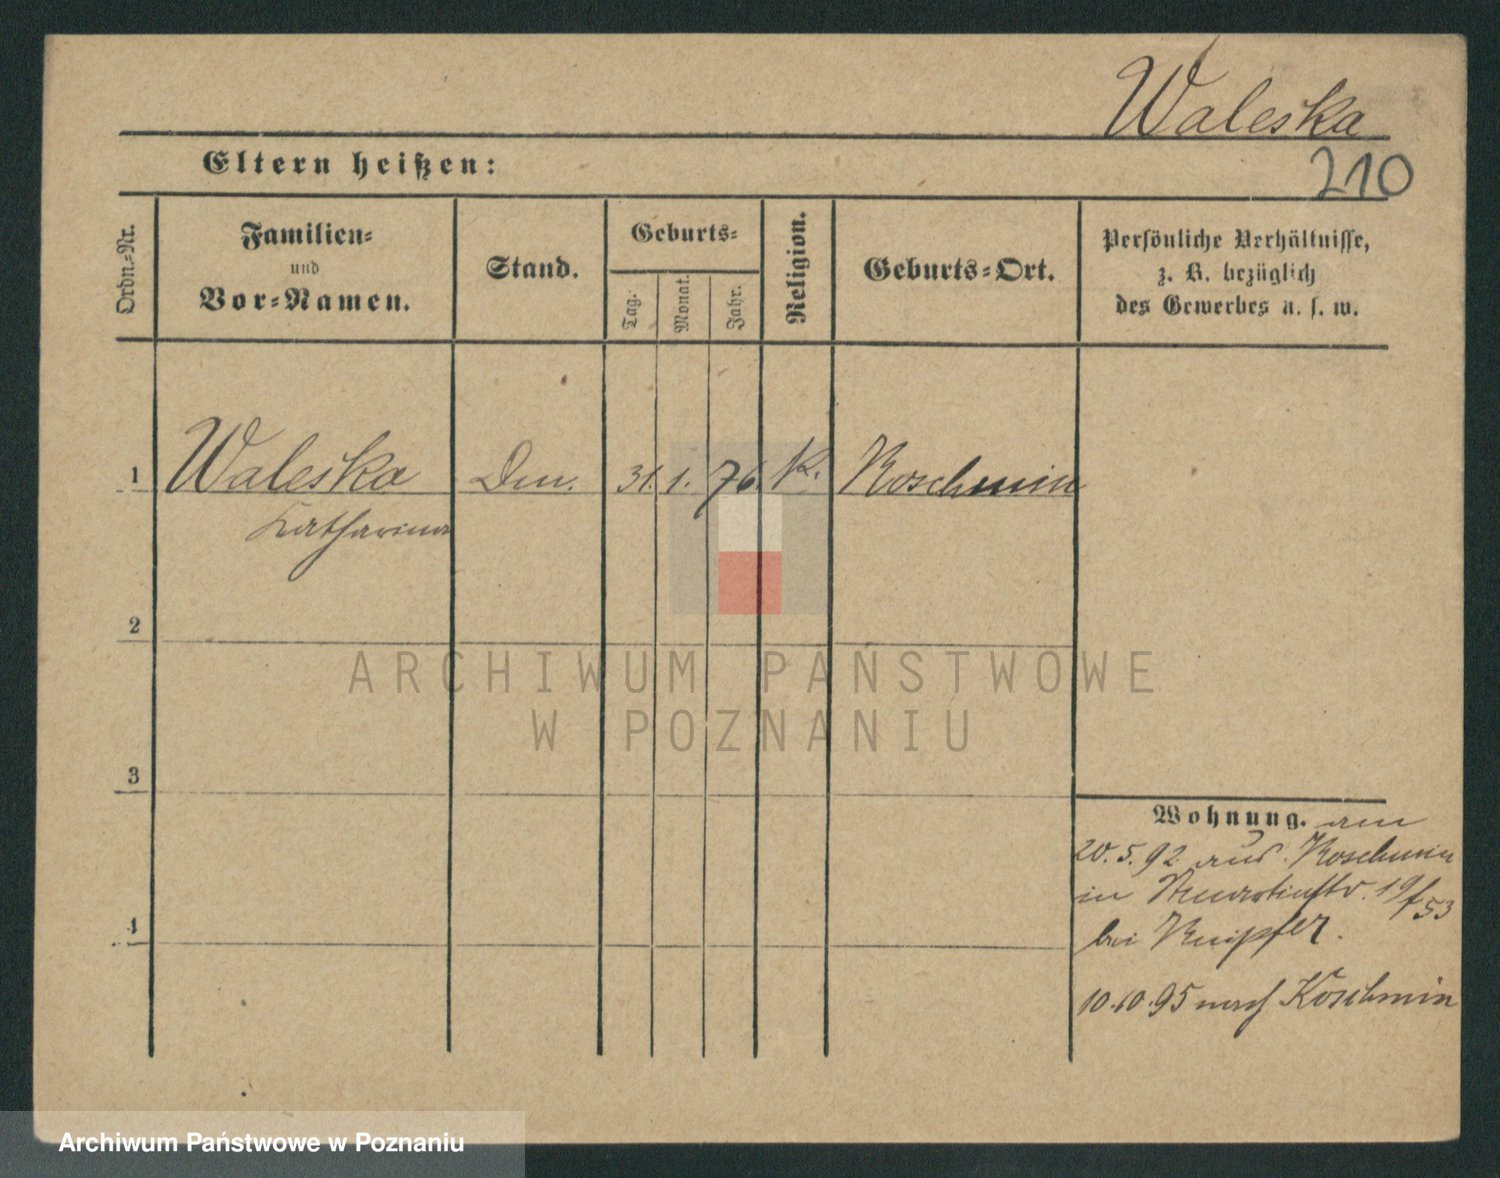 Waleska
210
Eltern heißen:
Ordn.-Nr.
Familien-
und
Vor-Namen.
Stand.
Geburts-
Tag.
Monat.
Jahr.
Religion.
Geburts-Ort.
Persönliche Verhältnisse,
z. B. bezüglich
des Gewerbes u. s. w.
1 Waleska 31. 1. 76. K. Koschmin
Katharina
2
3
4
Wohnung. am
20. 5. 92 aus Koschmin
in 19/53
bei
10.10.95 nach Koschmin
ARCHIWUM PAŃSTWOWE
W POZNANIU
Archiwum Państwowe w Poznaniu